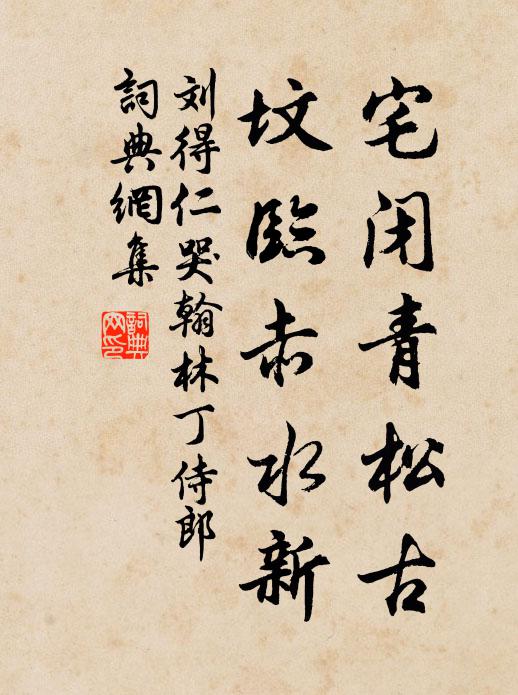 宅闭青松古
坟臨赤水新
刘得仁哭翰林丁侍郎
詞典網集
詞典网印